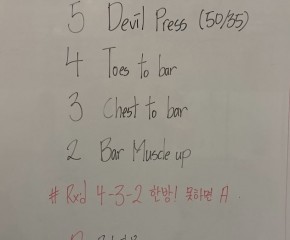 5 Devil Press (50/35)
4 Toes to bar
3 Chest to bar
2 Bar Muscle up
# Rxd 4-3-2 한방! 못하면 A